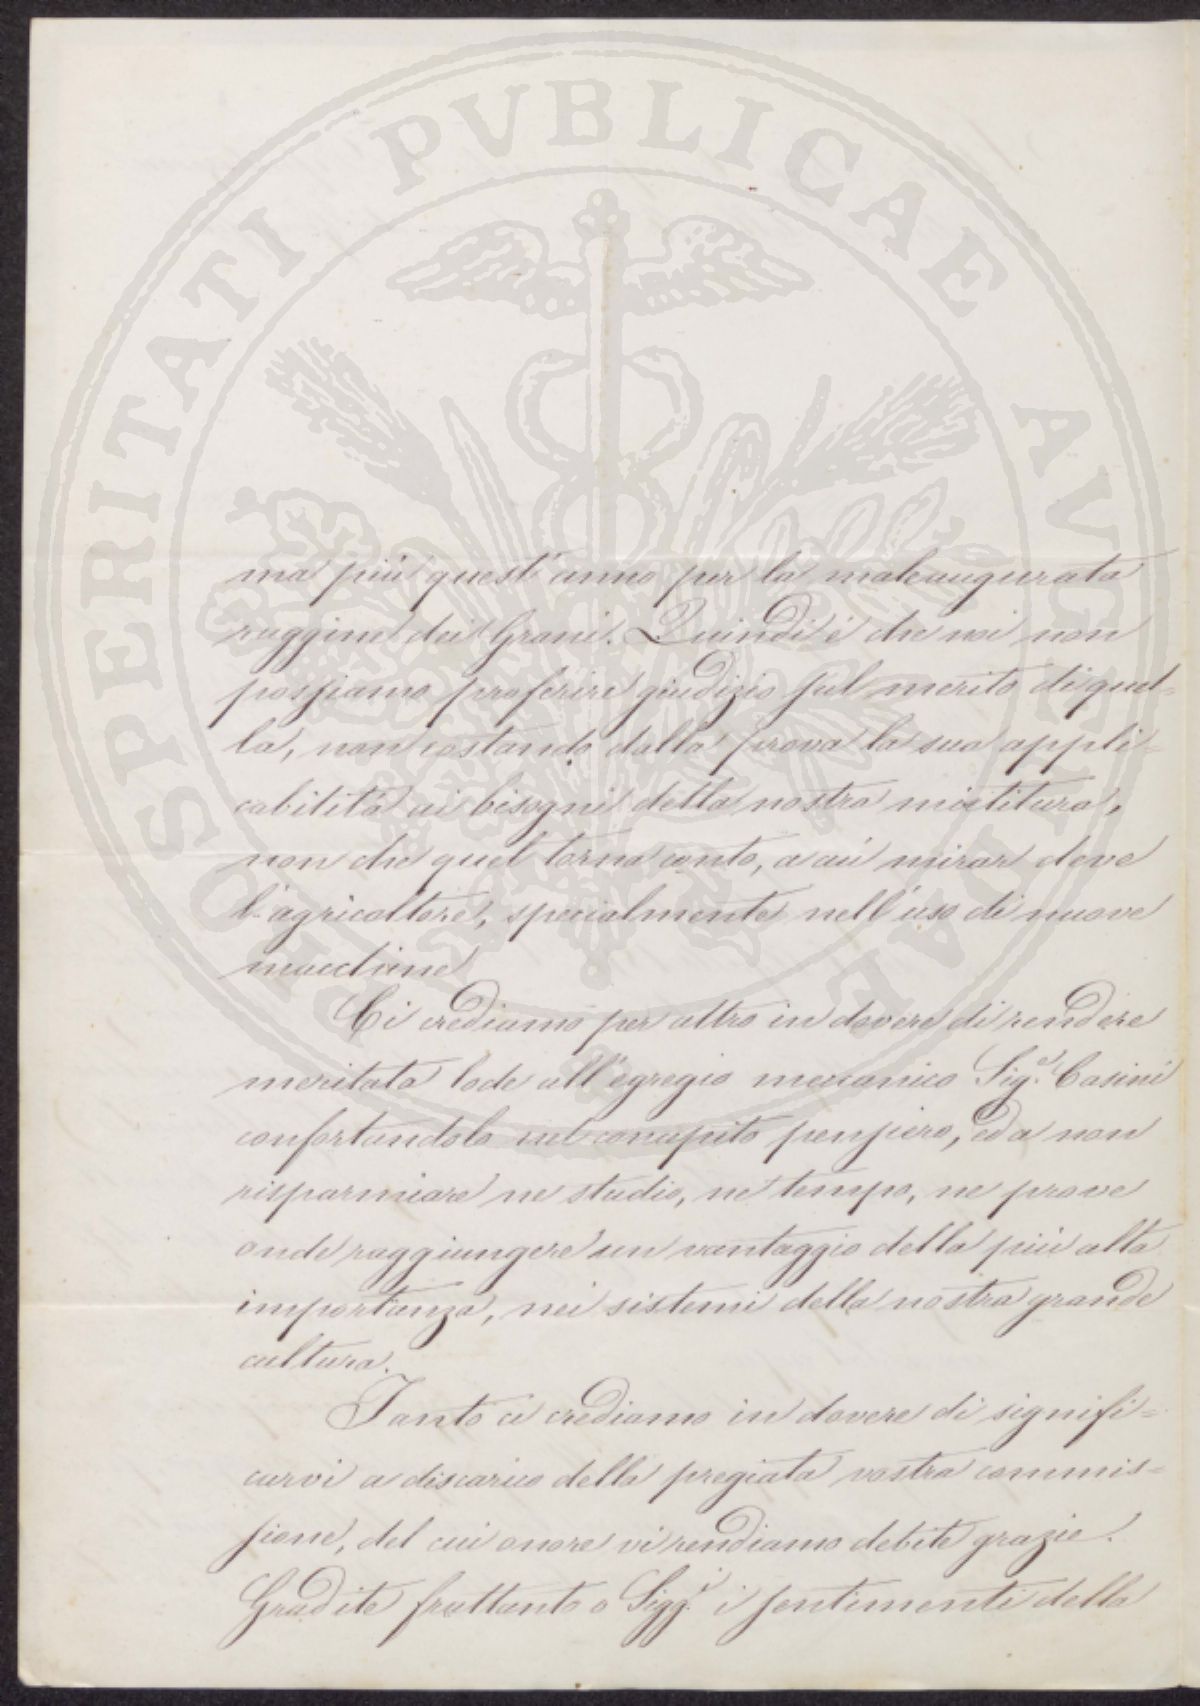 PROSPERITATI PVBLICAE AVGENDAE
ma più quest'anno per la malaugurata
ruggine dei Grani. Quindi è che noi non
possiamo proferire giudizio sul merito di quel=
la, non costando dalla prova la sua appli=
cabilità ai bisogni della nostra mietitura,
non che quel torna conto, a cui mirar deve
l'agricoltore, specialmente nell'uso di nuove
macchine
Ci crediamo per altro in dovere di rendere
meritata lode all'egregio meccanico Sig.r Casini
confortandolo nel concepito pensiero, ed a non
risparmiare ne studio, ne tempo, ne prove
onde raggiungere un vantaggio della più alta
importanza, nei sistemi della nostra grande
cultura.
Tanto ci crediamo in dovere di signifi=
carvi a discarico della pregiata vostra commis=
sione, del cui onore vi rendiamo debite grazie.
Gradite frattanto o Sigg.i i sentimenti della